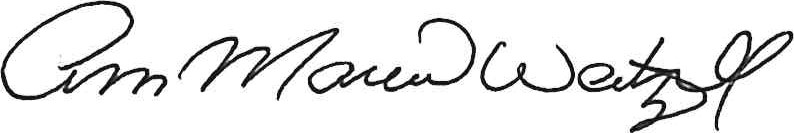 Ann Marie Weitzel